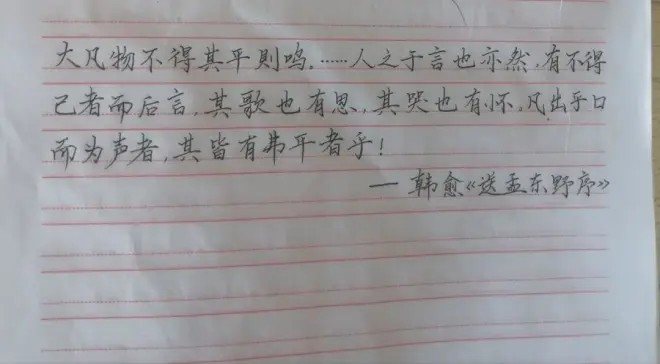 大凡物不得其平则鸣。……人之于言也亦然,有不得
已者而后言,其歌也有思,其哭也有怀。凡出乎口
而为声者,其皆有弗平者乎!
—韩愈《送孟东野序》